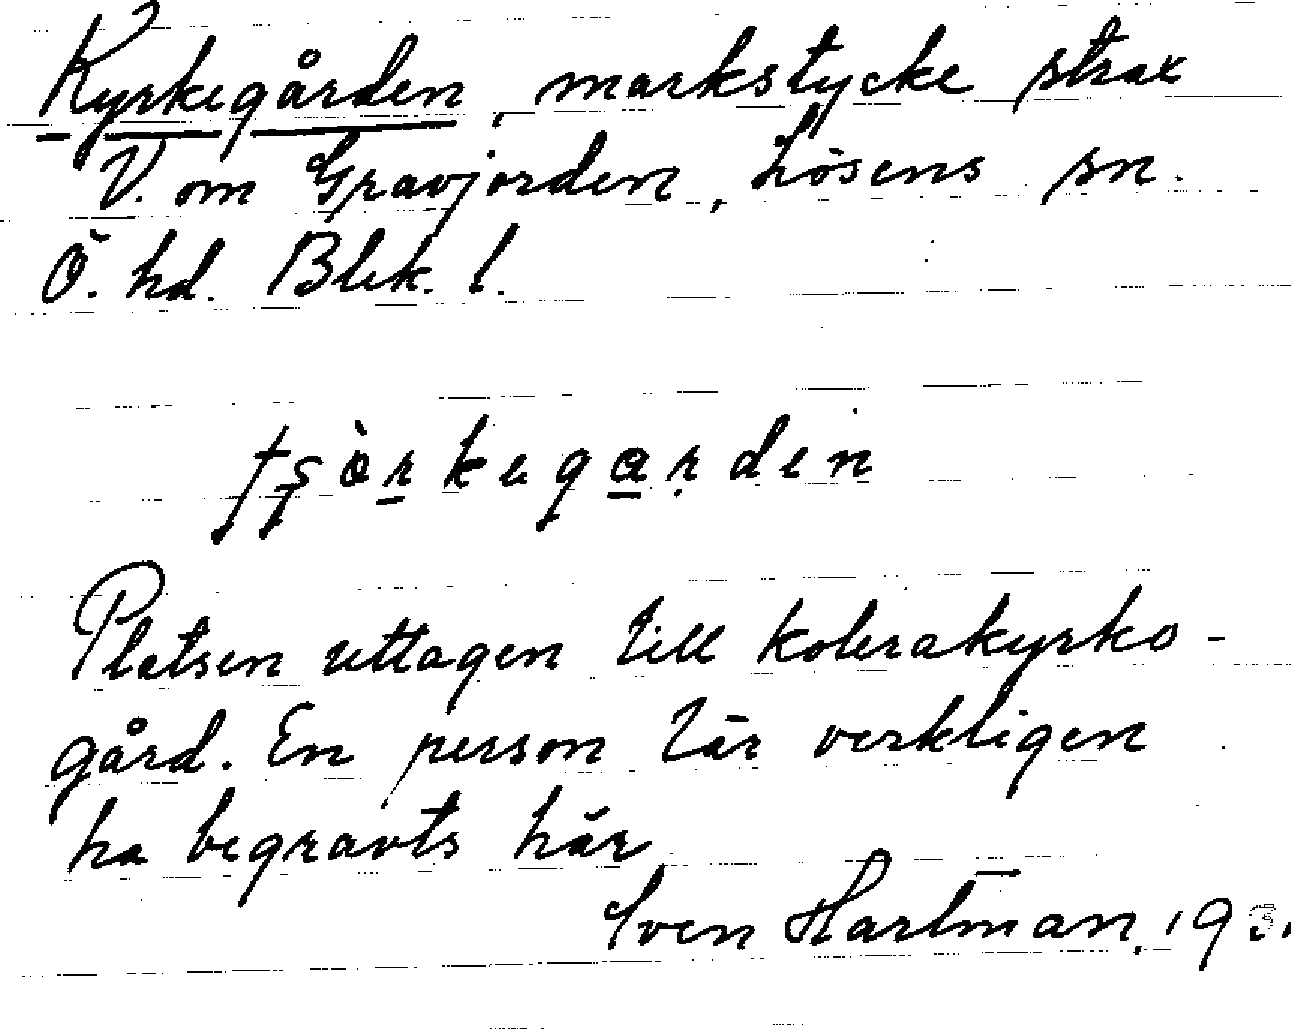 Kyrkegården, markstycke strax
V. om Gravjorden, Lösens sn.
Ö. hd. Blek. l.
Platsen uttagen till kolerakyrko-
gård. En person lär verkligen
ha begravts här
Sven Hartman,